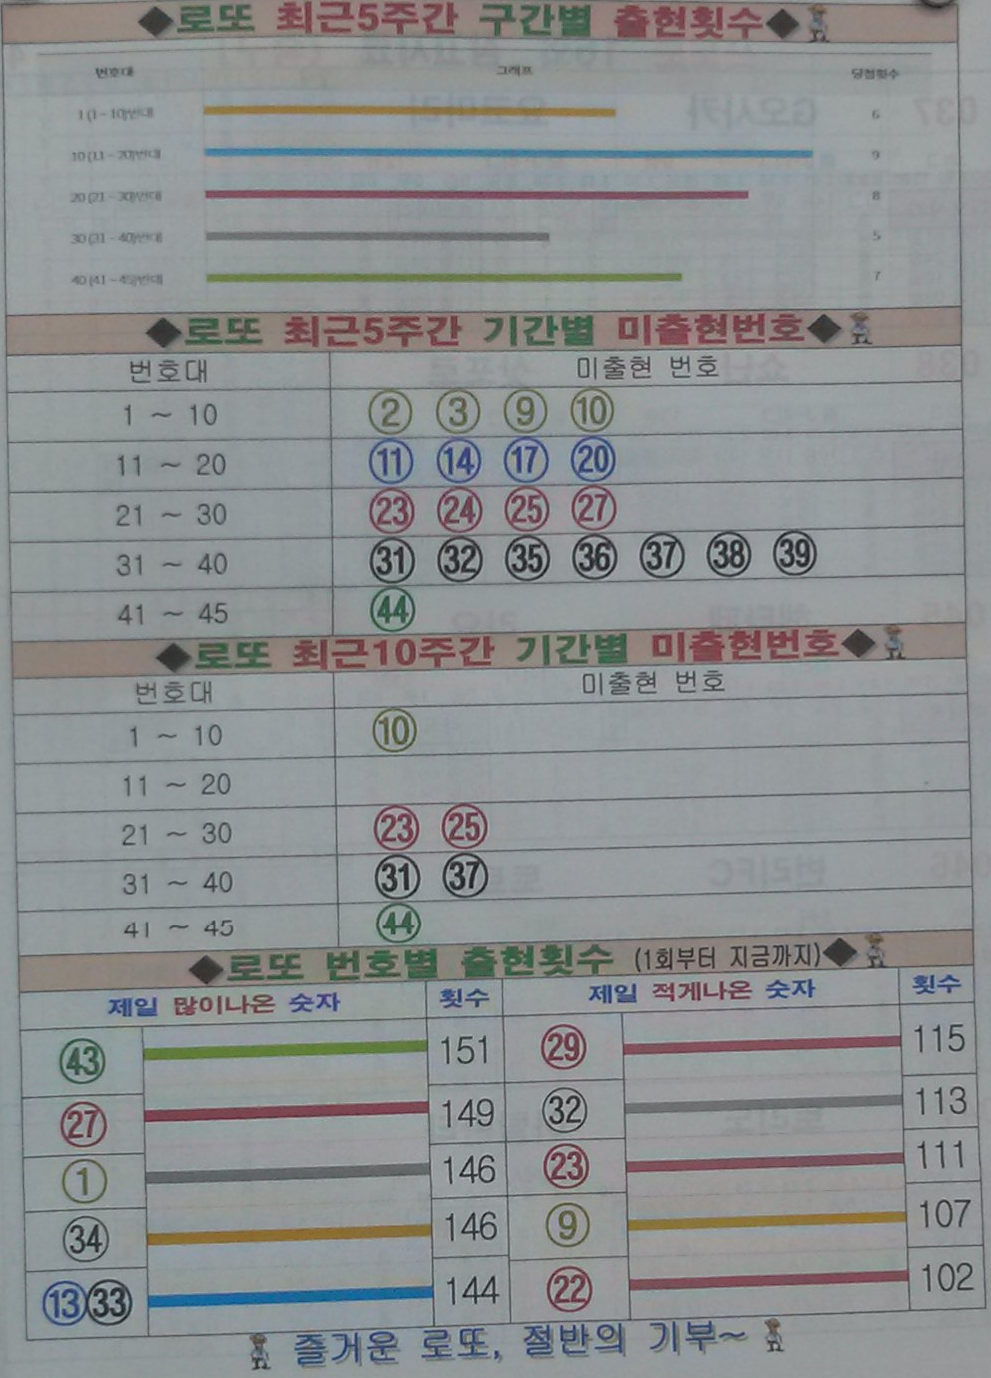 ◆로또 최근5주간 구간별 출현횟수◆
번호대 그래프 당첨횟수
1 (1 ~ 10)번대 6
10 (11 ~ 20)번대 9
20 (21 ~ 30)번대 8
30 (31 ~ 40)번대 5
40 (41 ~ 45)번대 7
◆로또 최근5주간 기간별 미출현번호◆
번호대 미출현 번호
1 ~ 10 2 3 9 10
11 ~ 20 11 14 17 20
21 ~ 30 23 24 25 27
31 ~ 40 31 32 35 36 37 38 39
41 ~ 45 44
◆로또 최근10주간 기간별 미출현번호◆
번호대 미출현 번호
1 ~ 10 10
11 ~ 20
21 ~ 30 23 25
31 ~ 40 31 37
41 ~ 45 44
◆로또 번호별 출현횟수 (1회부터 지금까지)◆
제일 많이나온 숫자 횟수 제일 적게나온 숫자 횟수
43 151 29 115
27 149 32 113
1 146 23 111
34 146 9 107
13 33 144 22 102
즐거운 로또, 절반의 기부~